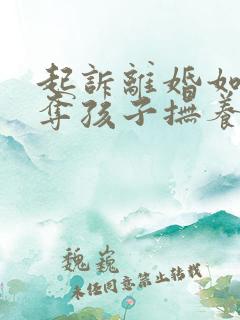 起訴離婚如
奪孩子撫養
魏巍
未经同意禁止转载